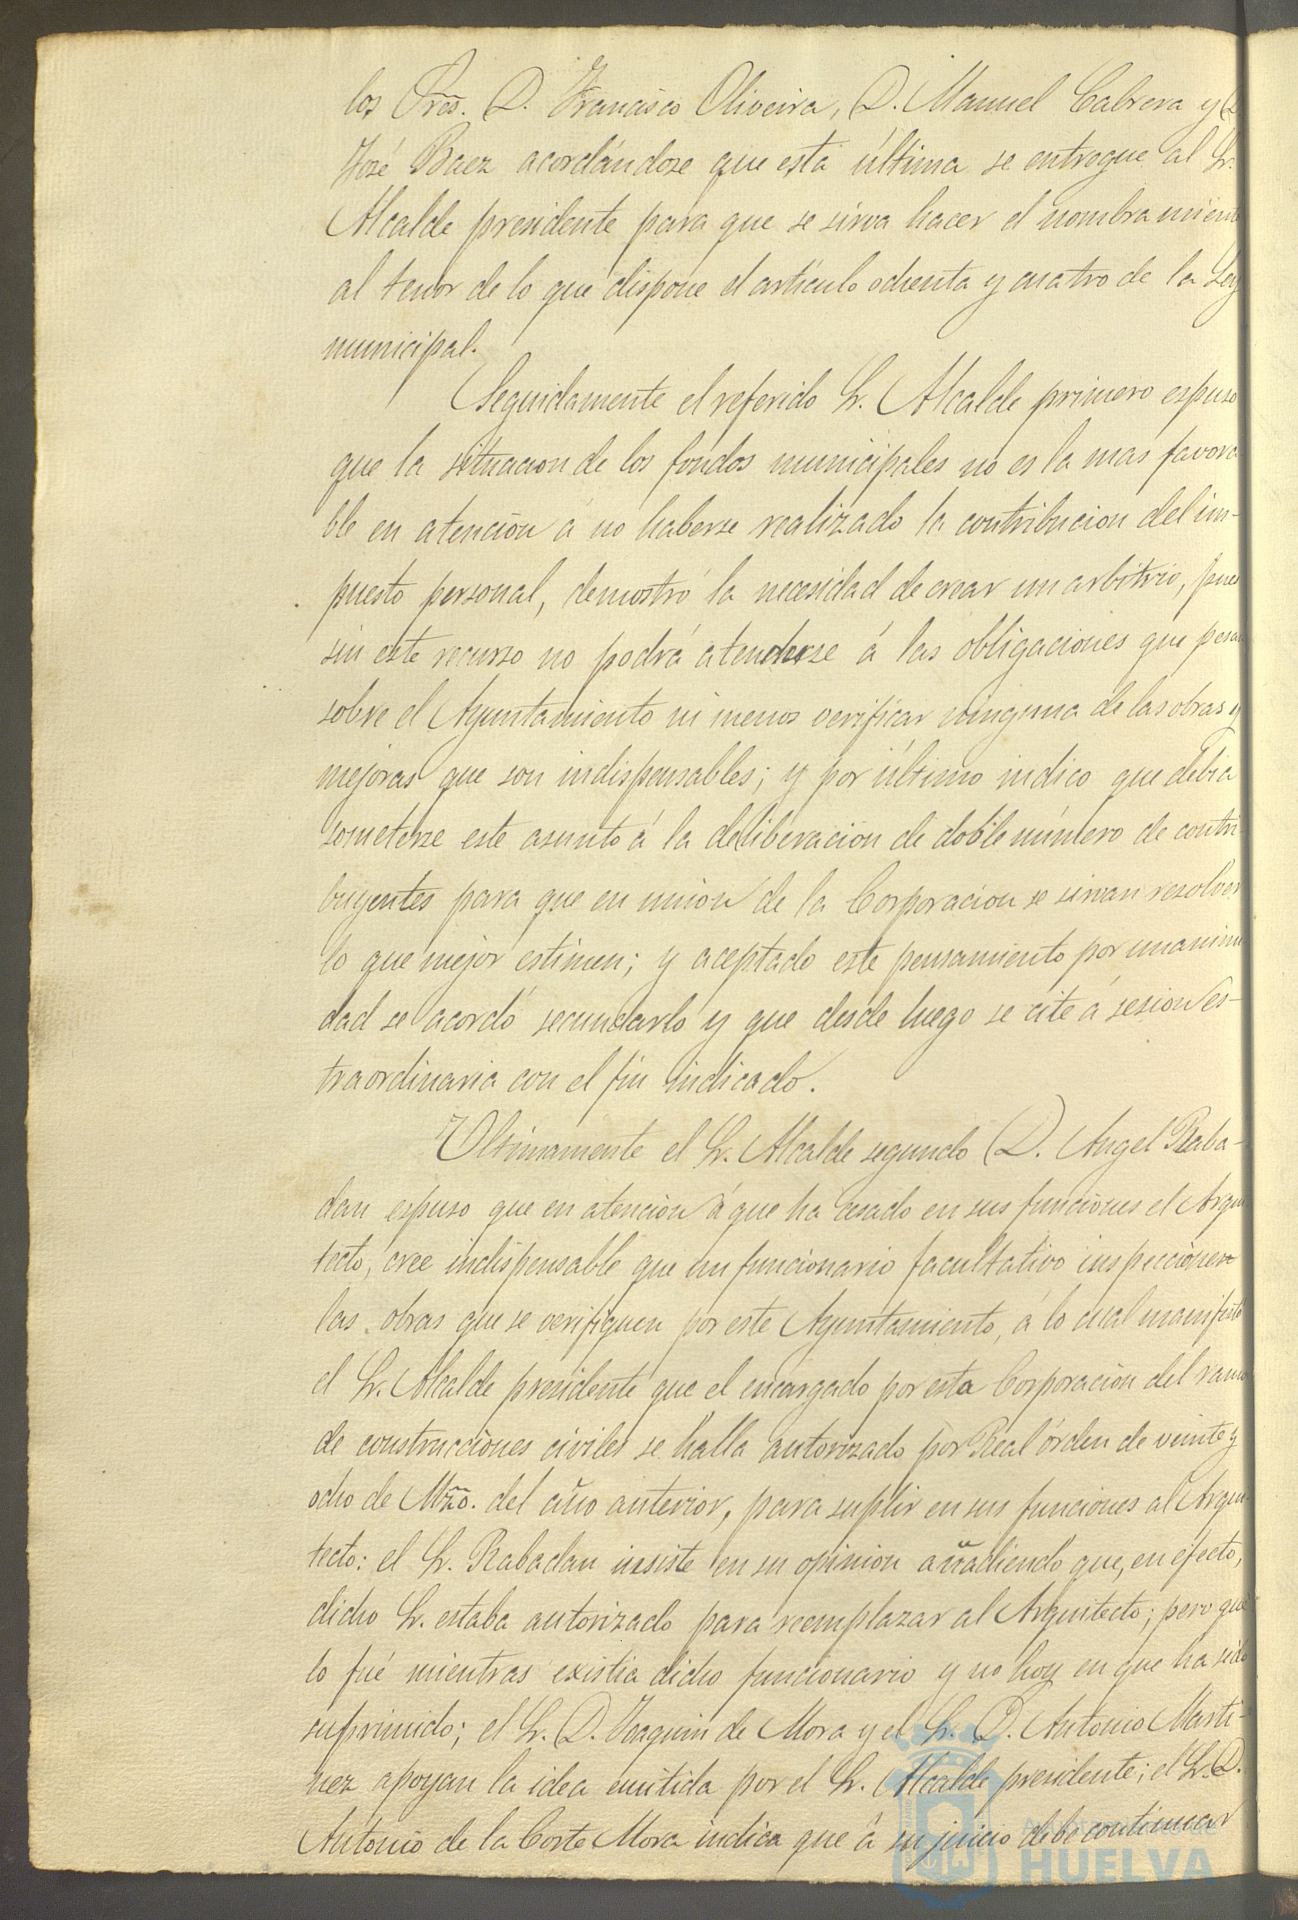 los Sres. D. Francisco Oliveira, D. Manuel Cabrera y D.
José Baez acordándose que esta última se entregue al Sr.
Alcalde presidente para que se sirva hacer el nombramiento
al tenor de lo que dispone el artículo ochenta y cuatro de la Ley
municipal.
Seguidamente el referido Sr. Alcalde primero espuso
que la situacion de los fondos municipales no es la mas favora
ble en atención á no haberse realizado la contribucion del im-
puesto personal, demostró la necesidad de crear un arbitrio, pues
sin este recurso no podrá atenderse á las obligaciones que pesan
sobre el Ayuntamiento ni menos verificar ninguna de las obras y
mejoras que son indispensables; y por último indico que debia
someterse este asunto á la deliberación de doble número de contri
buyentes para que en union de la Corporacion se sirvan resolver
lo que mejor estimen; y aceptado este pensamiento por unanimi
dad se acordó secundarlo y que desde luego se cite á sesion es-
traordinaria con el fin indicado.
Ultimamente el Sr. Alcalde segundo D. Angel Raba-
dan espuso que en atencion á que ha cesado en sus funciones el Arqui
tecto, cree indispensable que un funcionario facultativo inspeccione
las obras que se verifiquen por este Ayuntamiento, á lo cual manifestó
el Sr. Alcalde presidente que el encargado por esta Corporacion del ramo
de construcciones civiles se halla autorizado por Real órden de veinte y
ocho de Mzo. del año anterior, para suplir en sus funciones al Arqui-
tecto: el Sr. Rabadan insiste en su opinion añadiendo que, en efecto,
dicho Sr. estaba autorizado para reemplazar al Arquitecto; pero que
lo fué mientras existia dicho funcionario y no hoy en que ha sido
suprimido; el Sr. D. Joaquin de Mora y el Sr. D. Antonio Marti-
nez apoyan la idea emitida por el Sr. Alcalde presidente; el Sr. D.
Antonio de la Corte Mora indica que á su juicio debe continuar
HUELVA